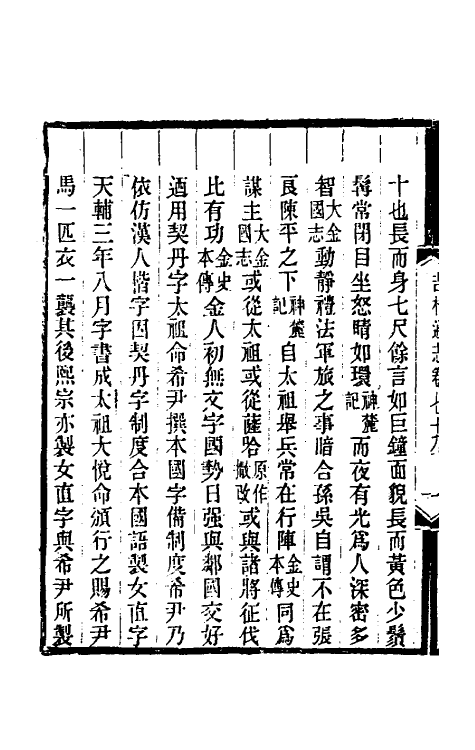 十也長而身七尺餘言如巨鐘面貌長而黃色少鬚
髯常閉目坐怒睛如環神麓記而夜有光爲人深密多
智大金國志動靜禮法軍旅之事暗合孫吳自謂不在張
良陳平之下神麓記自太祖舉兵常在行陣金史本傳同爲
謀主大金國志或從太祖或從薩哈原作撒改或與諸將征伐
比有功金史本傳金人初無文字國勢日强與鄰國交好
適用契丹字太祖命希尹撰本國字備制度希尹乃
依仿漢人楷字因契丹字制度合本國語製女直字
天輔三年八月字書成太祖大悅命頒行之賜希尹
馬一匹衣一襲其後熙宗亦製女直字與希尹所製